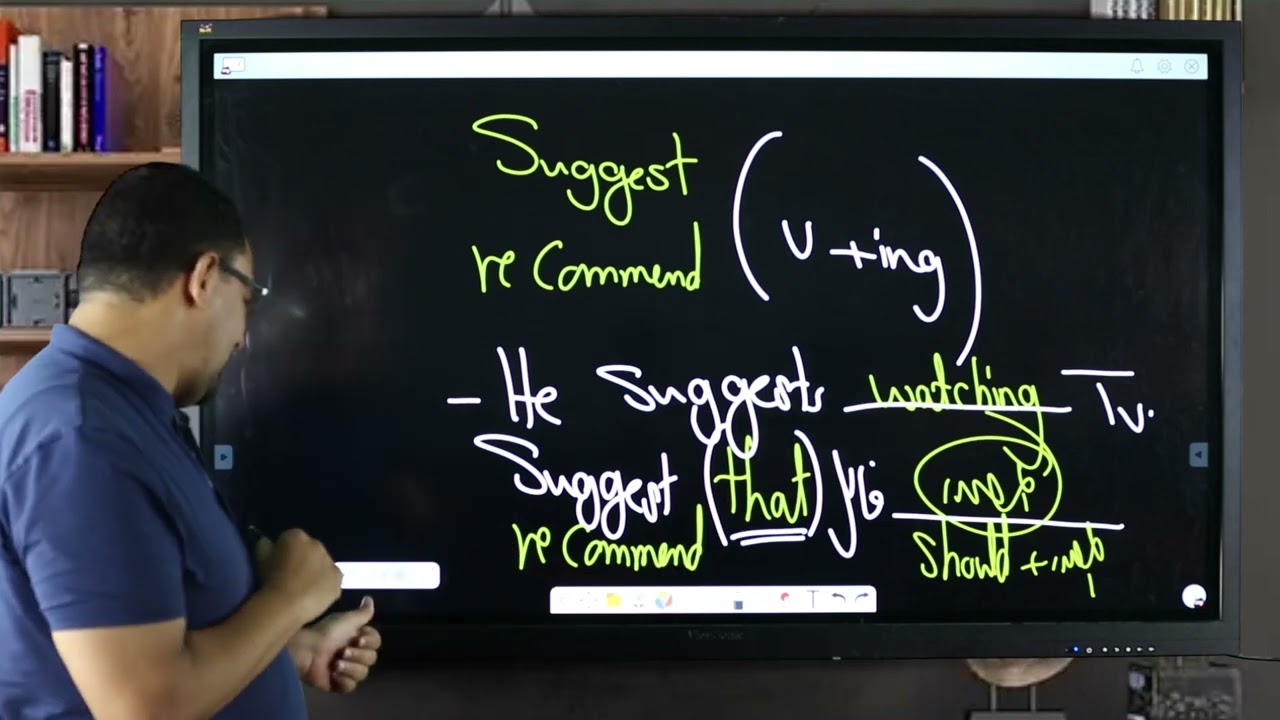 Suggest
recommend
(v + ing)
- He suggests watching Tv.
Suggest (that) فاعل
recommend
should + inf
ViewSonic